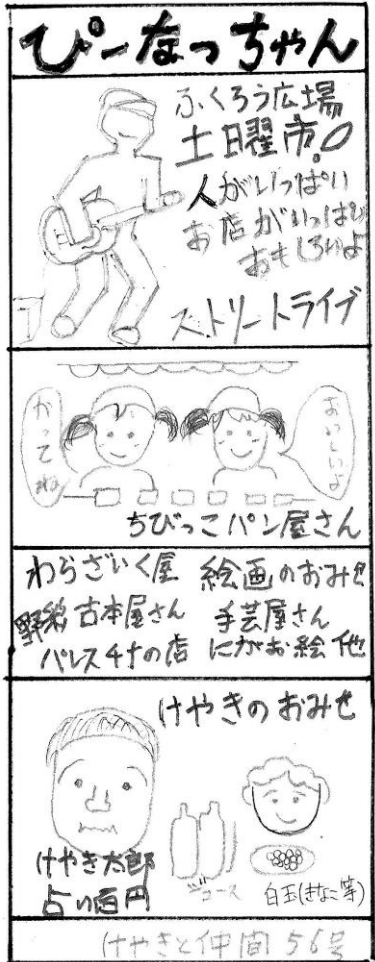 ぴーなっちゃん
ふくろう広場
土曜市。
人がいっぱい
お店がいっぱい
おもしろいよ
ストリートライブ
かってね
おいしいよ
ちびっこパン屋さん
わらざいく屋 絵画のおみせ
野菜 古本屋さん 手芸屋さん
パレスチナの店 にがお絵 他
けやきのおみせ
けやき太郎
占い百円
ジュース
白玉(きなこ等)
けやきと仲間 56号